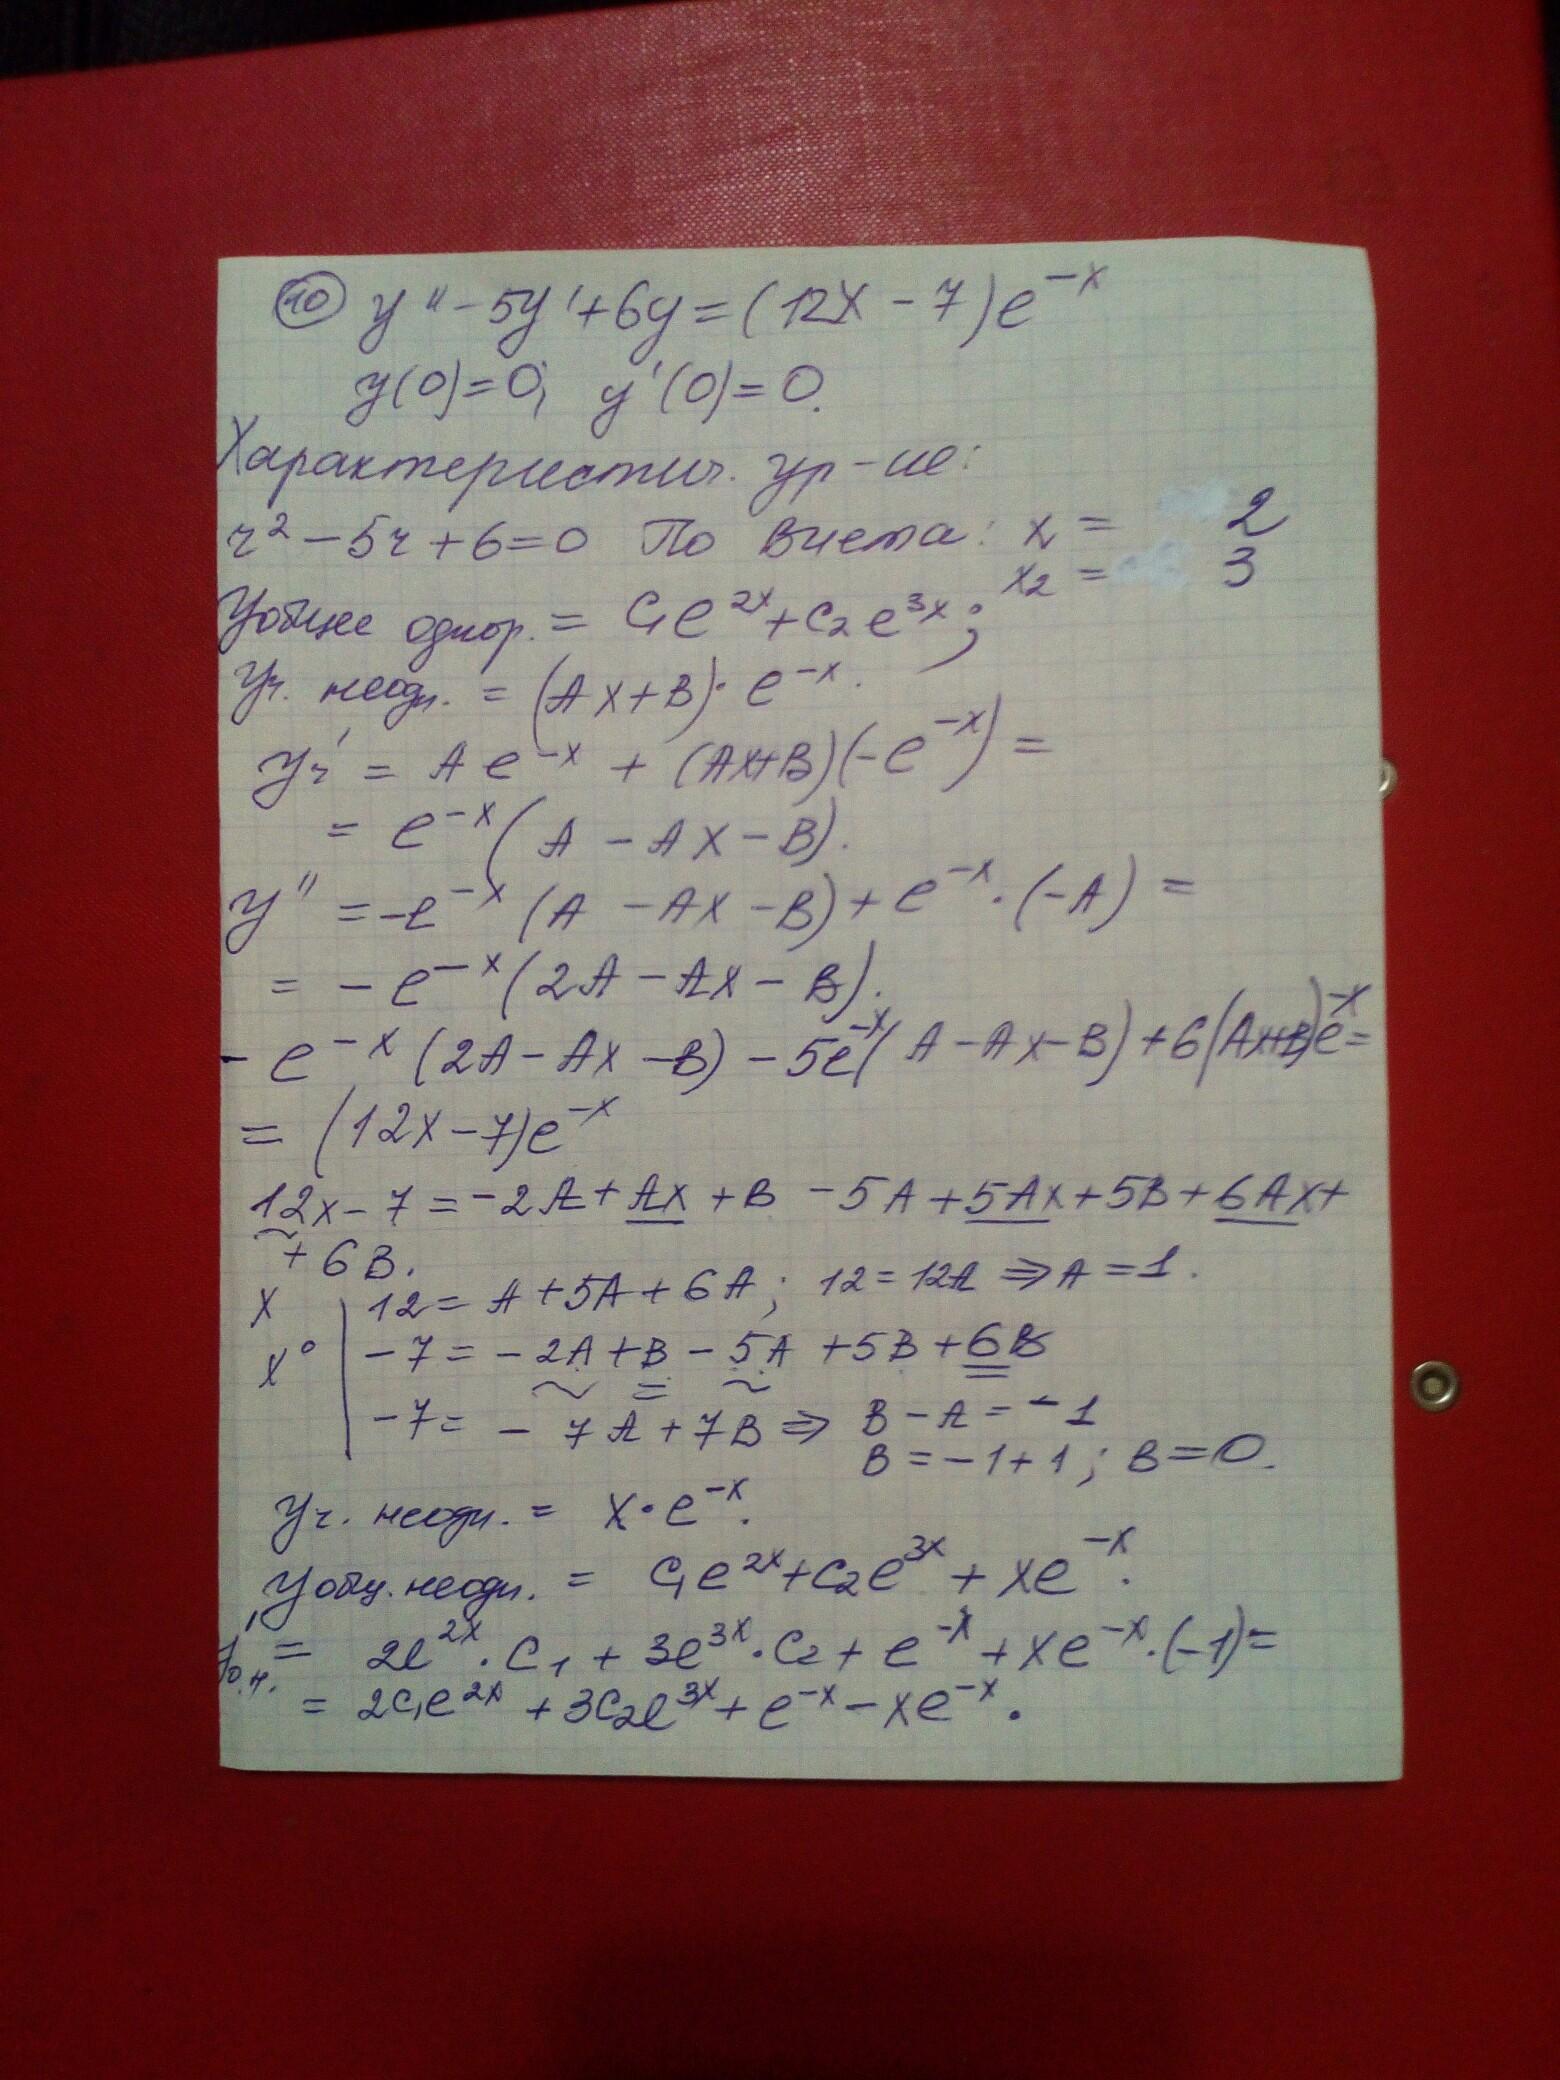 10 y'' - 5y' + 6y = (12x - 7)e^{-x}
y(0) = 0; y'(0) = 0.
Характеристич. ур-ие:
r² - 5r + 6 = 0 По Виета: x₁ = 2
x₂ = 3
Yобщее однор. = C₁e^{2x} + C₂e^{3x};
Yч. неодн. = (Ax + B)·e^{-x}.
Yч' = Ae^{-x} + (Ax+B)(-e^{-x}) =
= e^{-x}(A - Ax - B).
y'' = -e^{-x}(A - Ax - B) + e^{-x}·(-A) =
= -e^{-x}(2A - Ax - B).
-e^{-x}(2A - Ax - B) - 5e^{-x}(A - Ax - B) + 6(Ax+B)e^{-x} =
= (12x - 7)e^{-x}
12x - 7 = -2A + Ax + B - 5A + 5Ax + 5B + 6Ax +
+ 6B.
x | 12 = A + 5A + 6A; 12 = 12A ⇒ A = 1.
x⁰ | -7 = -2A + B - 5A + 5B + 6B
-7 = -7A + 7B ⇒ B - A = -1
B = -1 + 1; B = 0.
Yч. неодн. = x·e^{-x}.
Yобщ. неодн. = C₁e^{2x} + C₂e^{3x} + xe^{-x}.
Y'о.н. = 2e^{2x}·C₁ + 3e^{3x}·C₂ + e^{-x} + xe^{-x}·(-1) =
= 2C₁e^{2x} + 3C₂e^{3x} + e^{-x} - xe^{-x}.